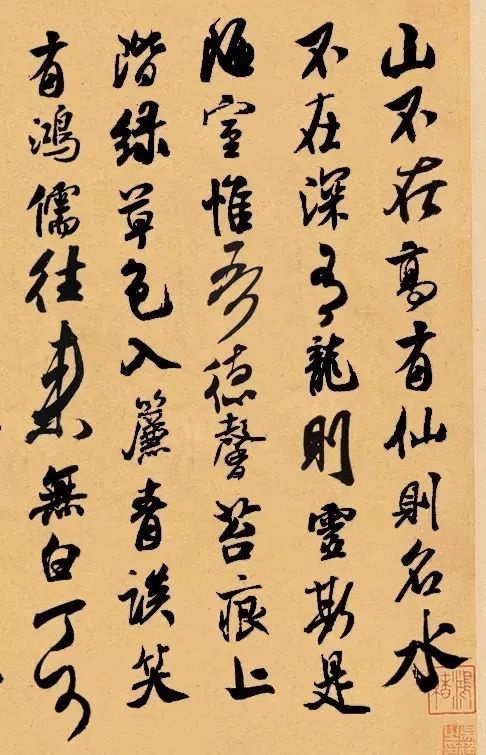 山不在高有仙則名水
不在深有龍則靈斯是
陋室惟吾德馨苔痕上
階緑草色入簾青談笑
有鴻儒往来無白丁可